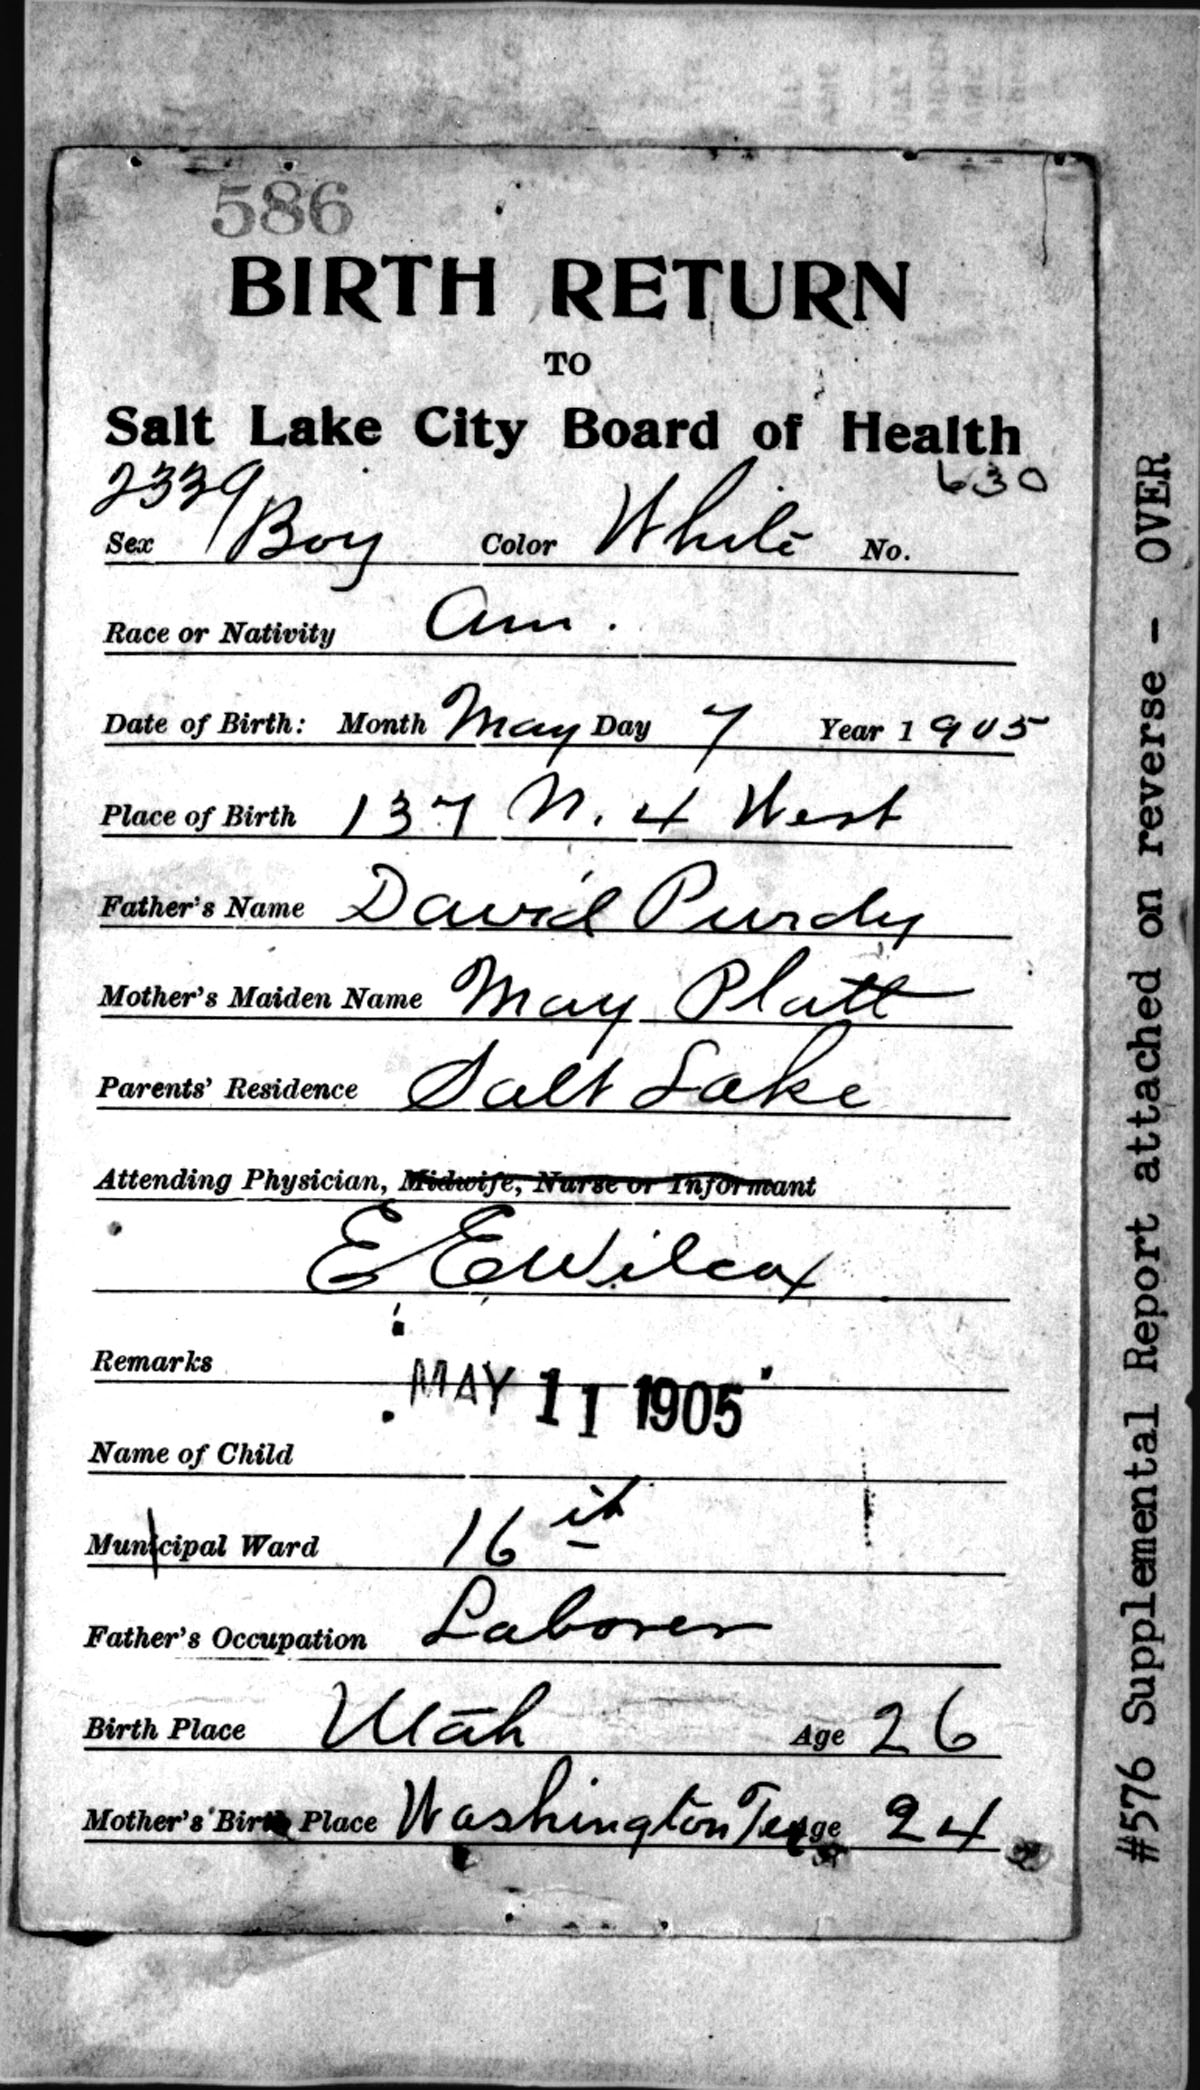 586
BIRTH RETURN
TO
Salt Lake City Board of Health
2339 630
Sex Boy Color White No.
Race or Nativity Am.
Date of Birth: Month May Day 7 Year 1905
Place of Birth 137 N. 4 West
Father's Name David Purdy
Mother's Maiden Name May Platt
Parents' Residence Salt Lake
Attending Physician, Midwife, Nurse or Informant
E E Wilcox
Remarks
MAY 11 1905
Name of Child
Municipal Ward 16th
Father's Occupation Laborer
Birth Place Utah Age 26
Mother's Birth Place Washington Age 24
#576 Supplemental Report attached on reverse - OVER